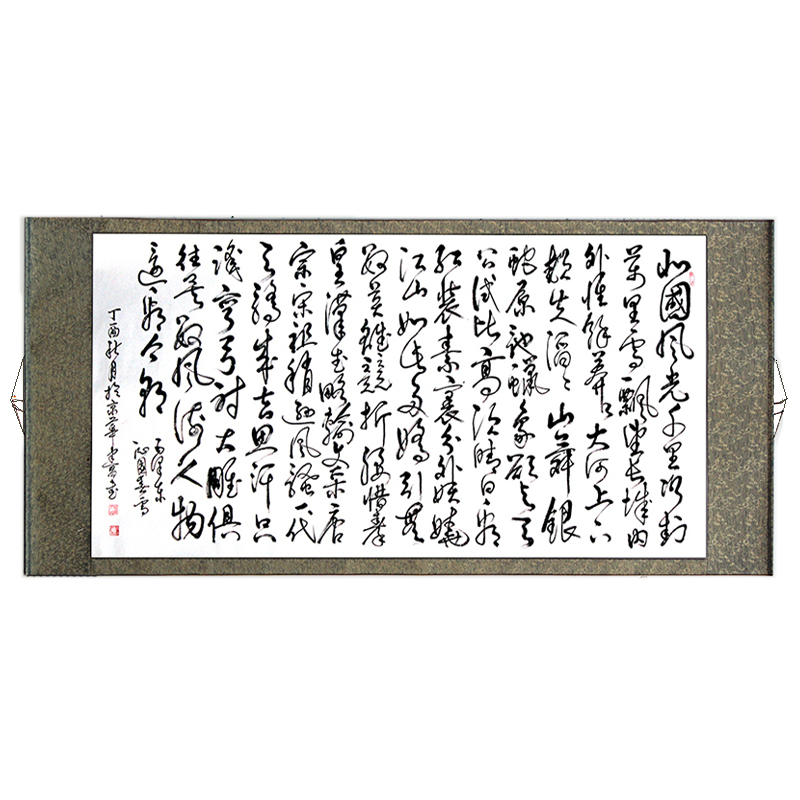 北國風光千里冰封
萬里雪飄望長城內
外惟餘莽莽大河上下
頓失滔滔山舞銀
蛇原馳蠟象欲與天
公試比高須晴日看
紅裝素裹分外妖嬈
江山如此多嬌引無
數英雄競折腰惜秦
皇漢武略輸文采唐
宗宋祖稍遜風騷一代
天驕成吉思汗只
識彎弓射大雕俱
往矣數風流人物
還看今朝
毛澤東
沁園春雪
丁酉秋月於京華